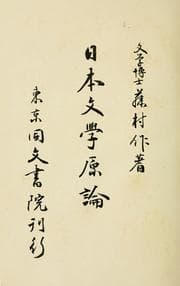 文学博士藤村作著
日本文學原論
東京同文書院刊行